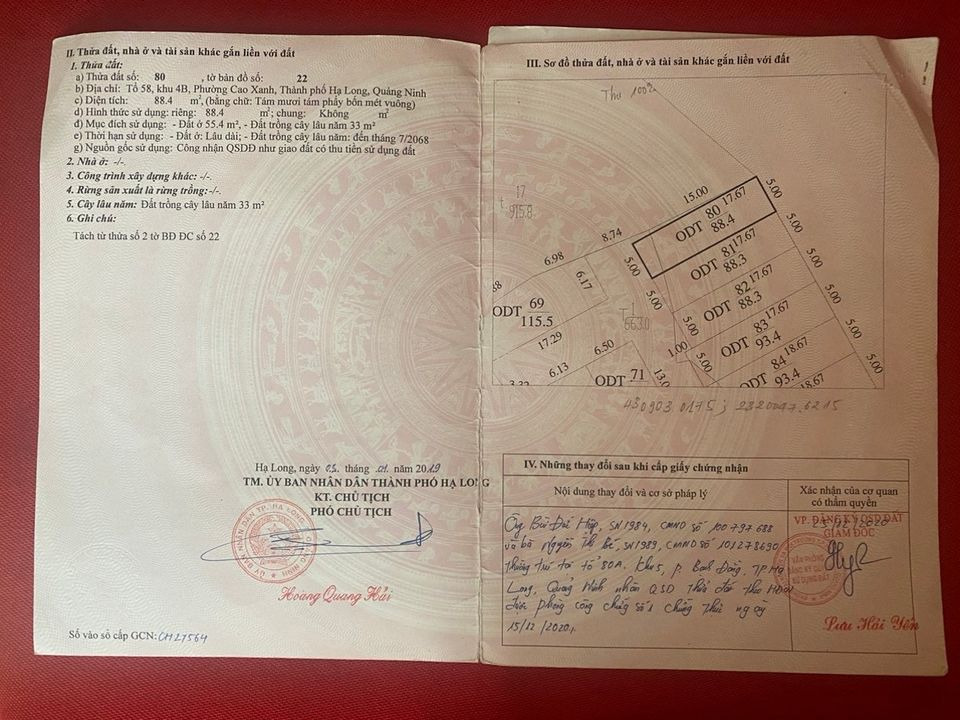 II. Thửa đất, nhà ở và tài sản khác gắn liền với đất
1. Thửa đất:
a) Thửa đất số: 80 , tờ bản đồ số: 22
b) Địa chỉ: Tổ 58, khu 4B, Phường Cao Xanh, Thành phố Hạ Long, Quảng Ninh
c) Diện tích: 88.4 m², (bằng chữ: Tám mươi tám phẩy bốn mét vuông)
d) Hình thức sử dụng: riêng: 88.4 m²; chung: Không m²
đ) Mục đích sử dụng: - Đất ở 55.4 m², - Đất trồng cây lâu năm 33 m²
e) Thời hạn sử dụng: - Đất ở: Lâu dài; - Đất trồng cây lâu năm: đến tháng 7/2068
g) Nguồn gốc sử dụng: Công nhận QSDĐ như giao đất có thu tiền sử dụng đất
2. Nhà ở: -/-.
3. Công trình xây dựng khác: -/-.
4. Rừng sản xuất là rừng trồng:-/-.
5. Cây lâu năm: Đất trồng cây lâu năm 33 m²
6. Ghi chú:
Tách từ thửa số 2 tờ BĐ ĐC số 22
Hạ Long, ngày 03 tháng 01 năm 2019
TM. ỦY BAN NHÂN DÂN THÀNH PHỐ HẠ LONG
KT. CHỦ TỊCH
PHÓ CHỦ TỊCH
Hoàng Quang Hải
Số vào sổ cấp GCN: CH27564
III. Sơ đồ thửa đất, nhà ở và tài sản khác gắn liền với đất
17
t 915.8
15.00
5.00
80 17.67
ODT 88.4
8.74
5.00
5.00
81 17.67
ODT 88.3
6.98
6.17
5.00
5.00
82 17.67
ODT 88.3
68
ODT 69
115.5
T 1
663.0
5.00
5.00
83 17.67
ODT 93.4
17.29
6.50
1.00
5.00
5.00
84 18.67
ODT 93.4
6.13
3.32
ODT 71
13.0
18.67
430903.0175; 2320047.6215
IV. Những thay đổi sau khi cấp giấy chứng nhận
Nội dung thay đổi và cơ sở pháp lý
Xác nhận của cơ quan
có thẩm quyền
Ông Bùi Đức Hiệp, SN1984, CMND số 100797688
và bà Nguyễn Thị Bé, SN1989, CMND số 101278690
thường trú tại tổ 80A, khu 5, p. Bạch Đằng, TP Hạ
Long, Quảng Ninh nhận QSD thửa đất theo HĐ
được phòng công chứng số 1 chứng thực ngày
15/12/2020.
23/12/2020
VP. ĐĂNG KÝ QSD ĐẤT
GIÁM ĐỐC
Lưu Hải Yến